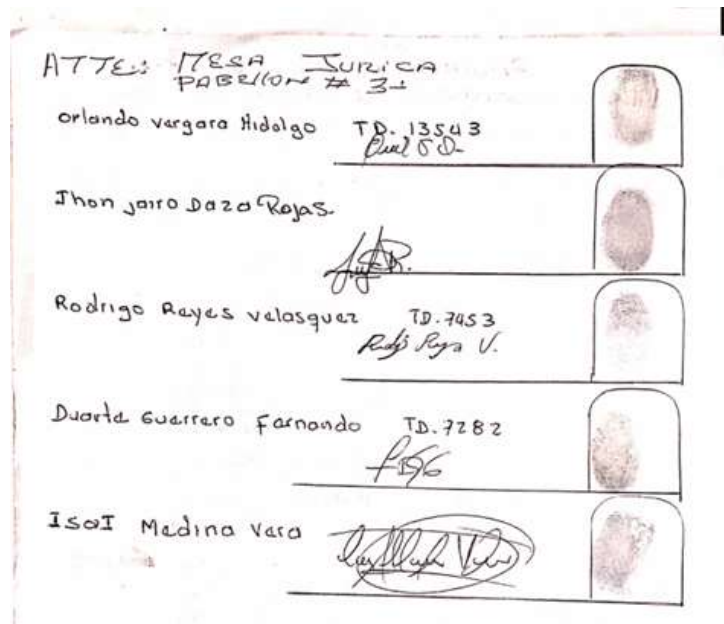 ATTE: MESA JURICA
PABELLON # 3-
orlando vergara Hidalgo TD. 13543
Jhon jairo Daza Rojas.
Rodrigo Reyes velasquez TD. 7453
Rodrigo Reyes V.
Duarte Guerrero Fernando TD. 7282
IsaI Medina Vera